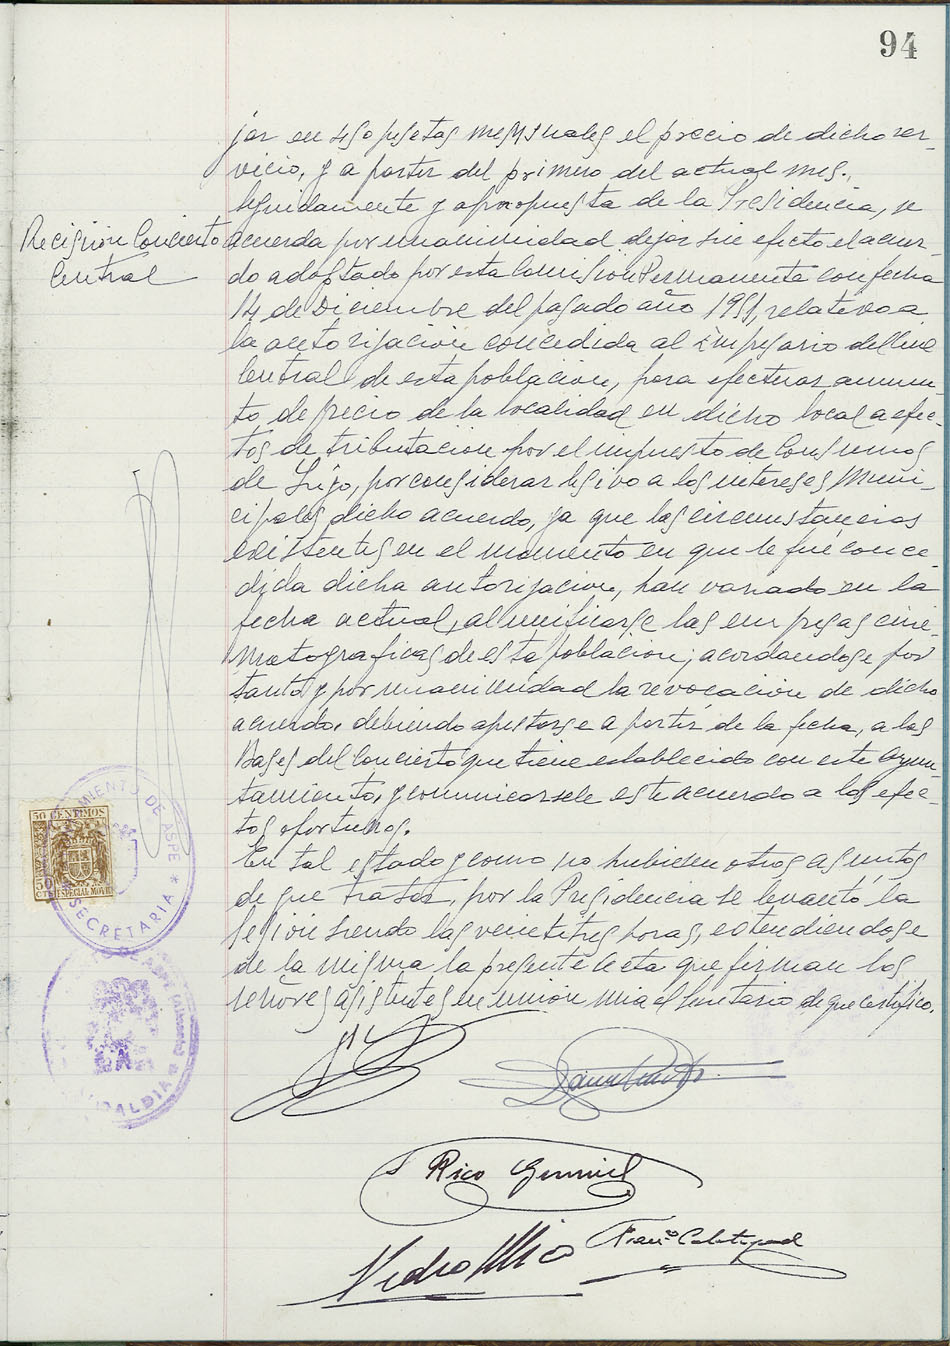 94
jar en 450 pesetas mensuales el precio de dicho ser-
vicio, y a partir del primero del actual mes.,
Seguidamente y a propuesta de la Presidencia, se
Recision Concierto
Central
acuerda por unanimidad dejar sin efecto el acuer-
do adoptado por esta Comisión Permanente con fecha
14 de Diciembre del pasado año 1951, relativo a
la autorización concedida al impresario del Cine
Central de esta población, para efectuar aumen-
to de precio de la localidad en dicho local a efec-
tos de tributación por el impuesto de Consumos
de Lujo, por considerar lesivo a los intereses Muni-
cipales dicho acuerdo, ya que las circunstancias
existentes en el momento en que le fué conce-
dida dicha autorización, han variado en la
fecha actual, al unificarse las empresas cine-
matograficas de esta población; acordandose por
tanto y por unanimidad la revocación de dicho
acuerdo, debiendo ajustarse a partir de la fecha, a las
Bases del Concierto que tiene establecido con este Ayun-
tamiento, y comunicarsele este acuerdo a los efec-
tos oportunos.
En tal estado y como no hubiesen otros asuntos
de que tratar, por la Presidencia se levantó la
sesión siendo las veintitres horas, extendiendose
de la misma la presente Acta que firman los
señores asistentes en unión mia el Secretario de que certifico.
50 CENTIMOS
ESPECIAL MOVIL
AYUNTAMIENTO DE ASPE
* SECRETARIA *
DE ASPE (Alicante)
ALCALDIA
Rico Gerniel
Pedro Mico
Franco Calatayud